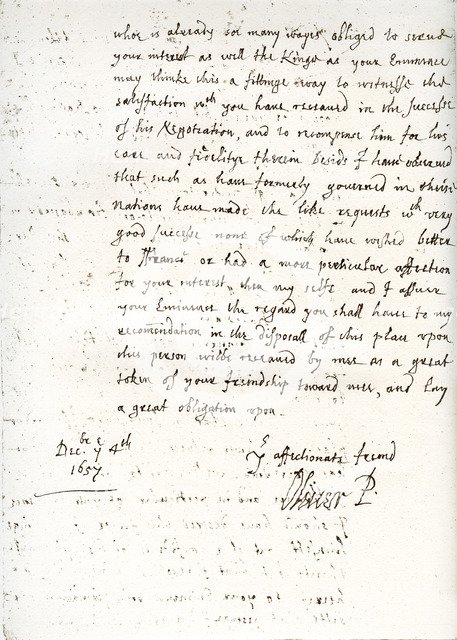 whoe is already soe many wayes obliged to serue
your interest as well the Kings as your Eminence
may thinke this a fittinge way to witnesse the
satisfaction wth you haue receaued in the successe
of his Negotiation, and to recompense him for his
care and fidelitye therein Besids I haue obserued
that such as haue formerly gouerned in theise
Nations haue made the like requests wth very
good successe none of which haue wished better
to ffrance or had a more perticular affection
for your interest then my selfe and I assure
your Eminence the regard you shall haue to my
recomendation in the disposall of this place vpon
this person wilbe receaued by mee as a great
token of your freindship toward mee, and Lay
a great obligation vpon
Dec.bre ye 4th
1657
Yr affectionate freind
Oliver P.